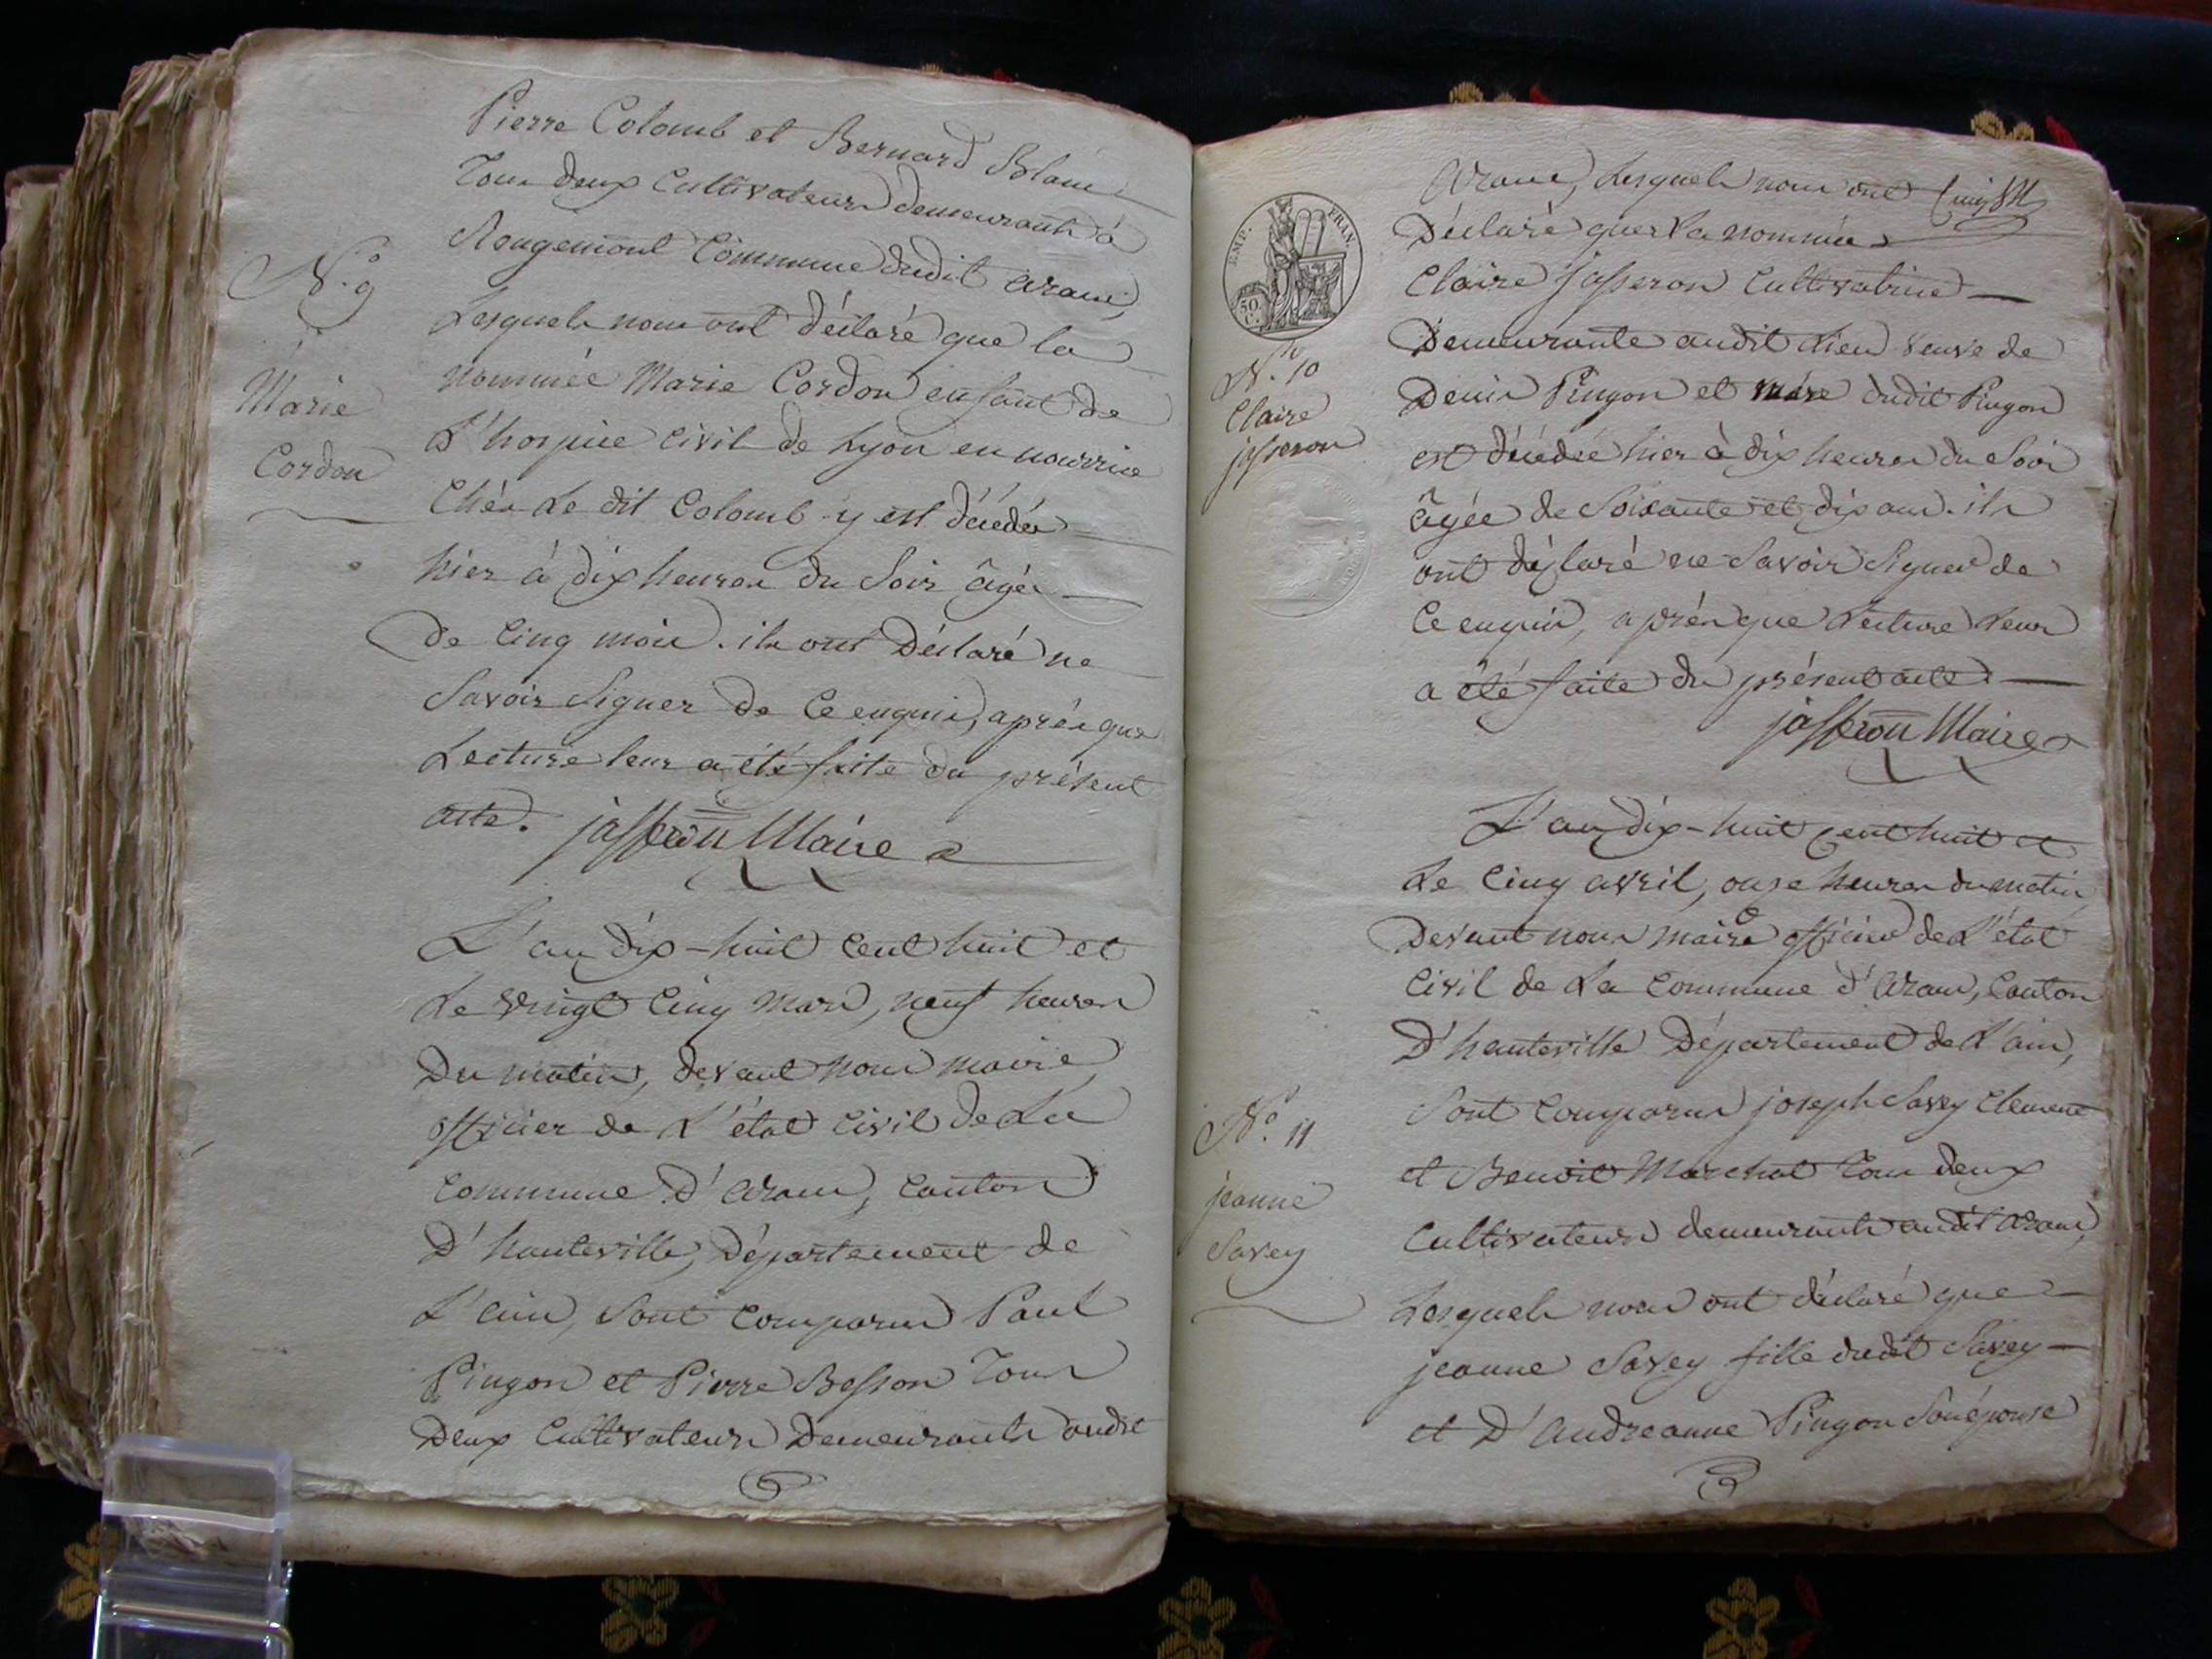 Pierre Colomb et Bernard Blanc
Tous deux Cultivateurs demeurants à
Rougemont Commune dudit aranc,
Lesquels nous ont déclaré que la
N.o 9
Marie
Cordon
nommée Marie Cordon enfant de
L'hospice civil de Lyon en nourrice
Chés Le dit Colomb y est décédée
hier à dix heures du Soir âgée
de Cinq mois. ils ont Déclaré ne
Savoir Signer de Ce enquis, après que
Lecture leur a été faite du présent
acte. jasseron Maire
L'an dix-huit Cent huit et
Le Vingt Cinq Mars, neuf heures
Du matin, devant nous maire
officier de L'état Civil de La
Commune D'aranc, Canton
D'hauteville, Département de
L'ain, Sont Comparus Paul
Pingon et Pierre Besson Tous
Deux Cultivateurs Demeurants audit
EMP. FRAN.
50
C.
aranc, Lesquels nous ont
Déclaré que La nommée
Claire jasseron Cultivatrice
N.o 10
Claire
jasseron
Demeurante audit Lieu veuve de
Denis Pingon et mère dudit Pingon
est décédée hier à dix heures du Soir
âgée de Soixante et dix ans. ils
ont déclaré ne Savoir Signer de
Ce enquis, après que Lecture Leur
a été faite du présent acte.
jasseron Maire
L'an dix-huit Cent huit et
Le Cinq avril, onze heures du matin
Devant nous maire officier de L'état
Civil de La Commune d'aranc, Canton
D'hauteville Département de L'ain,
N.o 11
jeanne
Savey
Sont Comparus joseph Savey Clement
et Benoit Marchat Tous deux
Cultivateurs demeurants audit aranc,
Lesquels nous ont déclaré que
jeanne Savey fille dudit Savey
et D'andreanne Pingon Son épouse